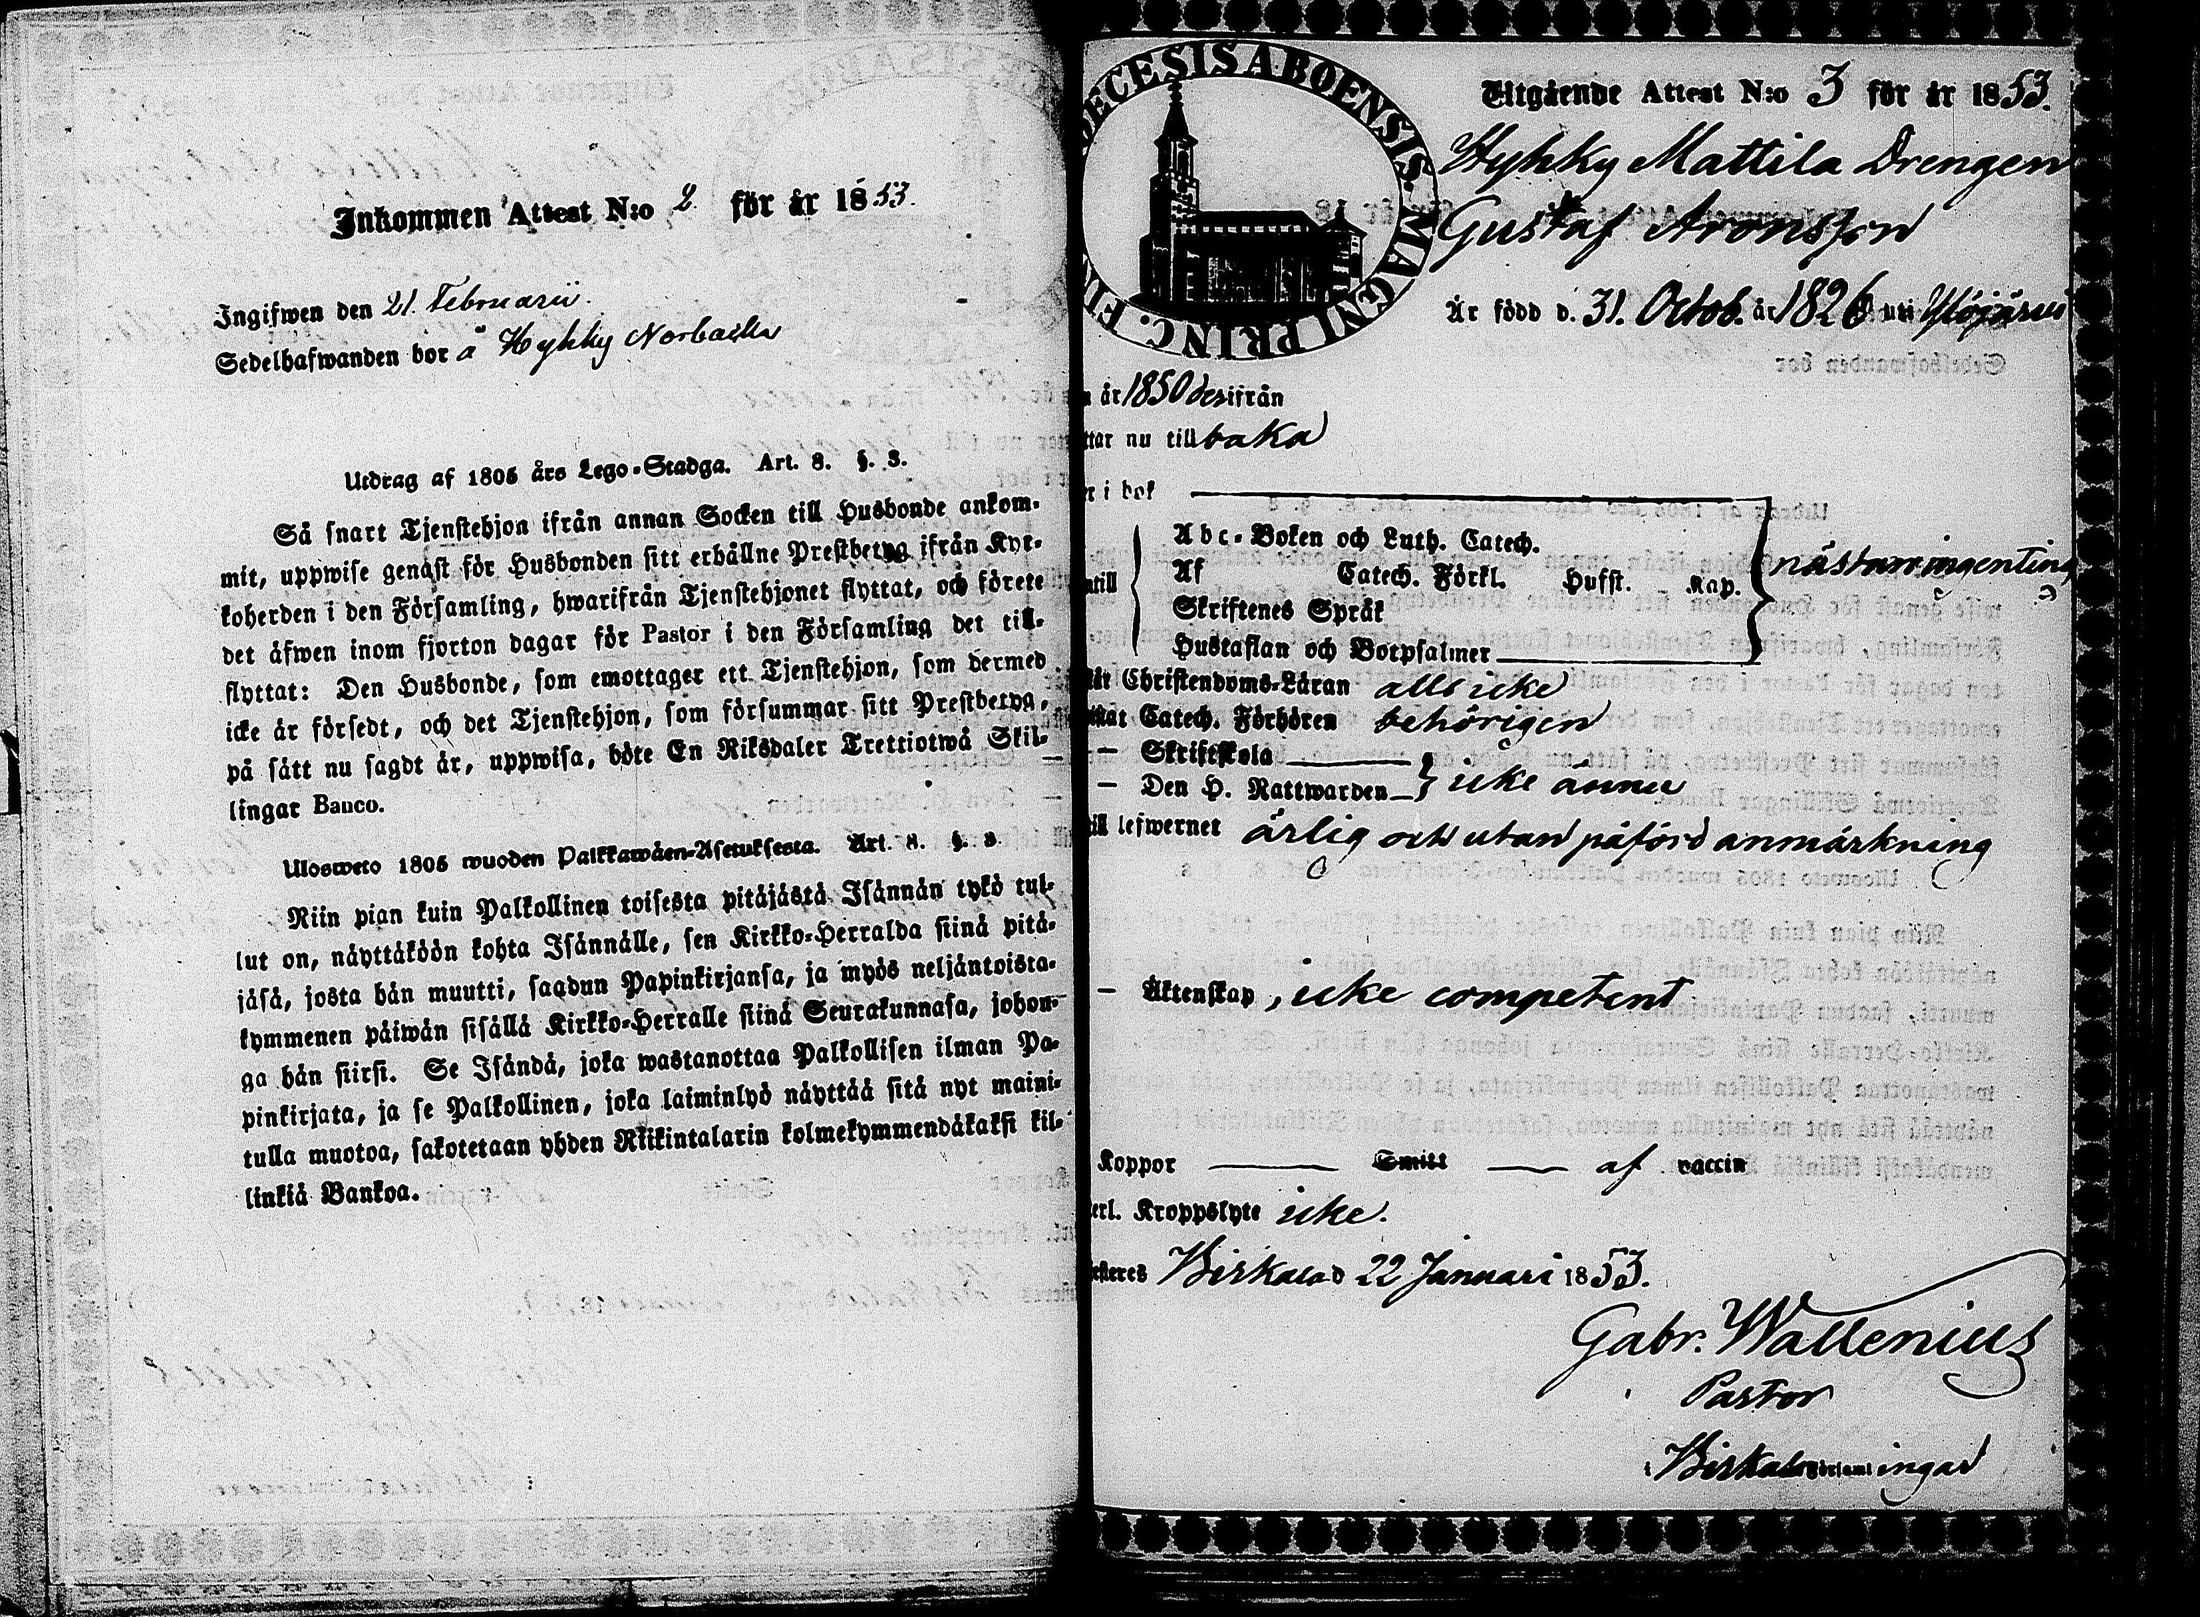 Inkommen Attest N:o 2 för år 1853.
Ingifwen den 21. Februarii.
Sedelhafwanden bor å Hyhky Norbacka
Utdrag af 1805 års Lego-Stadga. Art. 8. §. 3.
Så snart Tjenstehjon ifrån annan Socken till Husbonde ankom-
mit, uppwise genast för Husbonden sitt erhållne Prestbetyg ifrån Kyr-
koherden i den Församling, hwarifrån Tjenstehjonet flyttat, och förete
det äfwen inom fjorton dagar för Pastor i den Församling det till-
flyttat: Den Husbonde, som emottager ett Tjenstehjon, som dermed
icke är försedt, och det Tjenstehjon, som försummar sitt Prestbetyg,
på sätt nu sagdt är, uppwisa, böte En Riksdaler Trettiotwå Skil-
lingar Banco.
Ulosweto 1805 wuoden Palkkawäen-Asetuksesta. Art. 8. §. 3.
Niin pian kuin Palkollinen toisesta pitäjästä Isännän tykö tul-
lut on, näyttäköön kohta Isännälle, sen Kirkko-Herralda siinä pitä-
jäsä, josta hän muutti, saadun Papinkirjansa, ja myös neljäntoista-
kymmenen päiwän sisällä Kirkko-Herralle siinä Seurakunnasa, johon-
ga hän siirsi. Se Isändä, joka wastanottaa Palkollisen ilman Pa-
pinkirjata, ja se Palkollinen, joka laiminlyö näyttää sitä nyt maini-
tulla muotoa, sakotetaan yhden Riikintalarin kolmekymmendäkaksi kil-
linkiä Bankoa.
DECESIS ABOENSIS. MAGNI PRINC. FIN
Utgående Attest N:o 3 för år 1853.
Hyhky Mattila Drengen
Gustaf Aronsson
Är född d. 31. Octob. år 1826 uti Ylöjärvi
år 1850 derifrån
ttar nu tillbaka
er i bok
Abc-Boken och Luth. Catech.
Af Catech. Förkl. Hufst. Kap.
nästan ingenting
Skriftenes Språk
Hustaflan och Botpsalmer
Christendoms-Läran alls icke
Catech. Förhören behörigen
— Skriftskola
— Den H. Nattwarden icke ännu
ill lefwernet ärlig och utan påförd anmärkning
— Äktenskap, icke competent
Koppor — Smitt — af vaccin
erl. Kroppslyte icke.
esteres Birkala d 22 Januari 1853.
Gabr. Wallenius
Pastor
i Birkala Församlingar